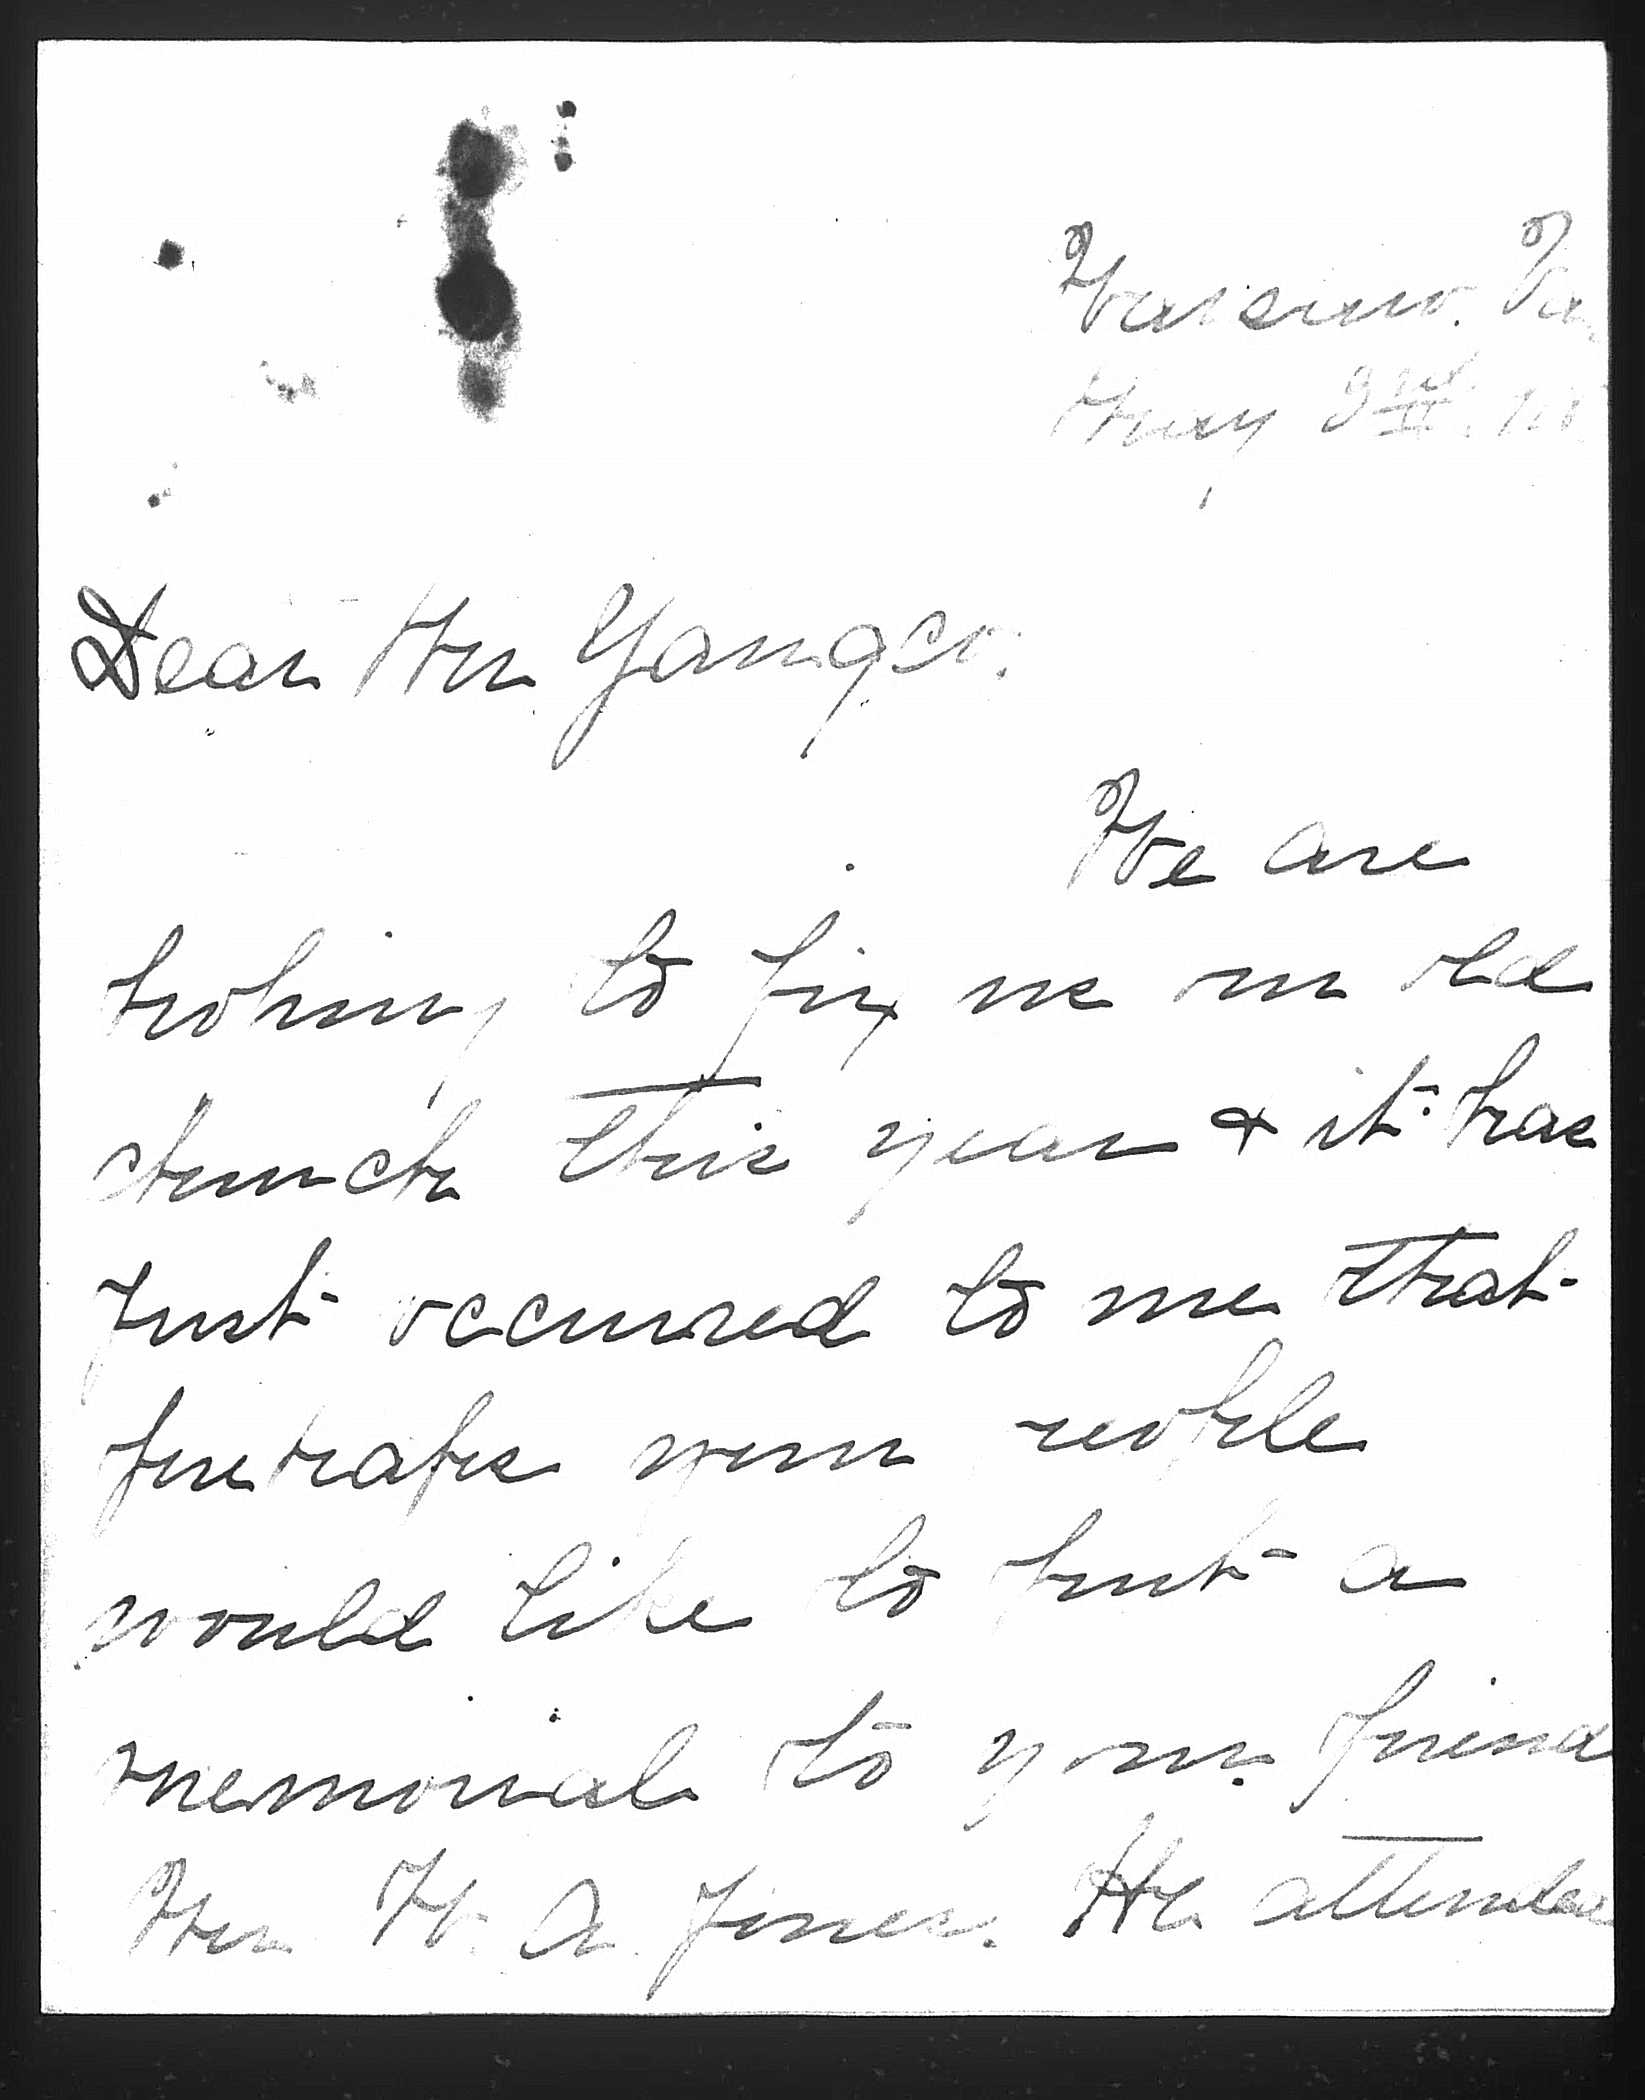 Warsaw. Va.
May 3rd.
Dear Mr Yangco.
We are
hoping to fix up our old
church this year & it has
just occured to me that
perhaps your people
would like to put a
memorial to your friend
Mr W. A. Jones. He attended